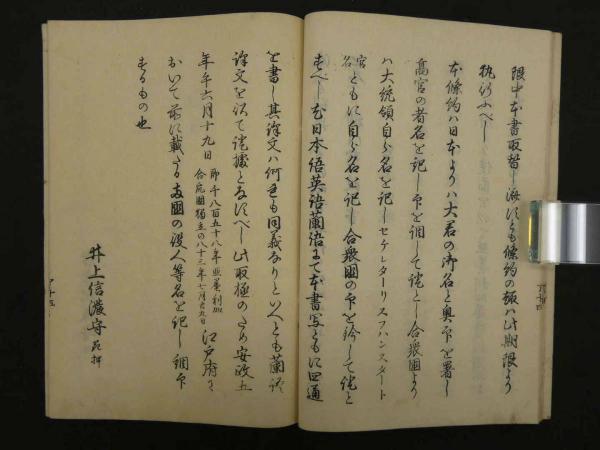 限中本書取替し済すとも條約の趣ハ此期限より
執行ふへし
本條約ハ日本よりハ大君の御名と奥印を署し
高官の者名を記し印を調して證とし合衆國より
ハ大統領自ら名を記しセケレターリスフハンスタート
官名ともに自ら名を記し合衆國の印を鈐して證と
すへし尤日本語英語蘭語にて本書写ともに四通
を書し其譯文ハ何れも同義なりといへとも蘭語
譯文を以て證據と為すへし此取極のため安政五
年午六月十九日 即千八百五十八年亜墨利加合衆國獨立の八十三年七月廿九日 江戸府に
おいて前に載たる両國の役人等名を記し調印
するもの也
井上信濃守 花押